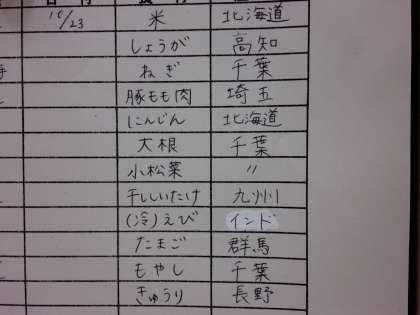 10/23 米 北海道
しょうが 高知
ねぎ 千葉
豚もも肉 埼玉
にんじん 北海道
大根 千葉
小松菜 〃
干ししいたけ 九州
(冷)えび インド
たまご 群馬
もやし 千葉
きゅうり 長野